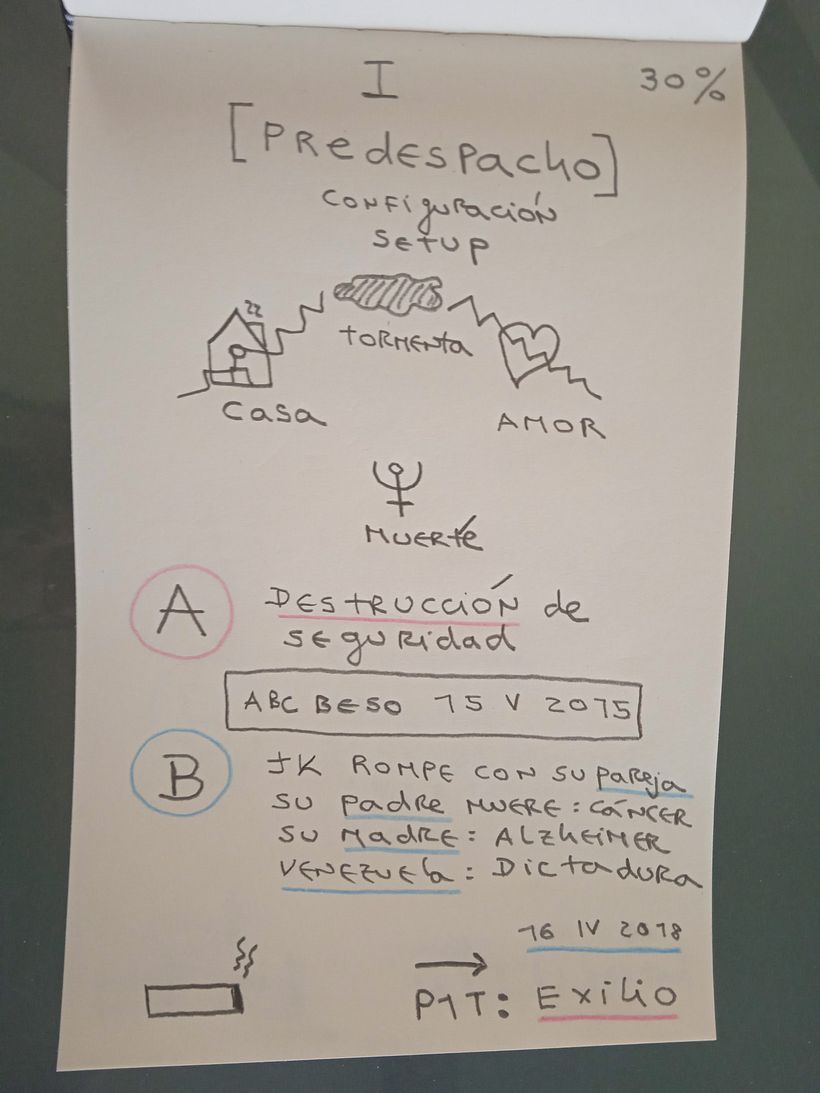 I
30%
[PREDESPACHO]
CONFIGURACIÓN
SETUP
TORMENTA
CASA
AMOR
MUERTE
A
DESTRUCCIÓN de
SEGURIDAD
ABC BESO 15 V 2015
B
JK ROMPE CON SU PAREJA
SU PADRE MUERE: CÁNCER
SU MADRE: ALZHEIMER
VENEZUELA: DICTADURA
16 IV 2018
P1T: EXILIO